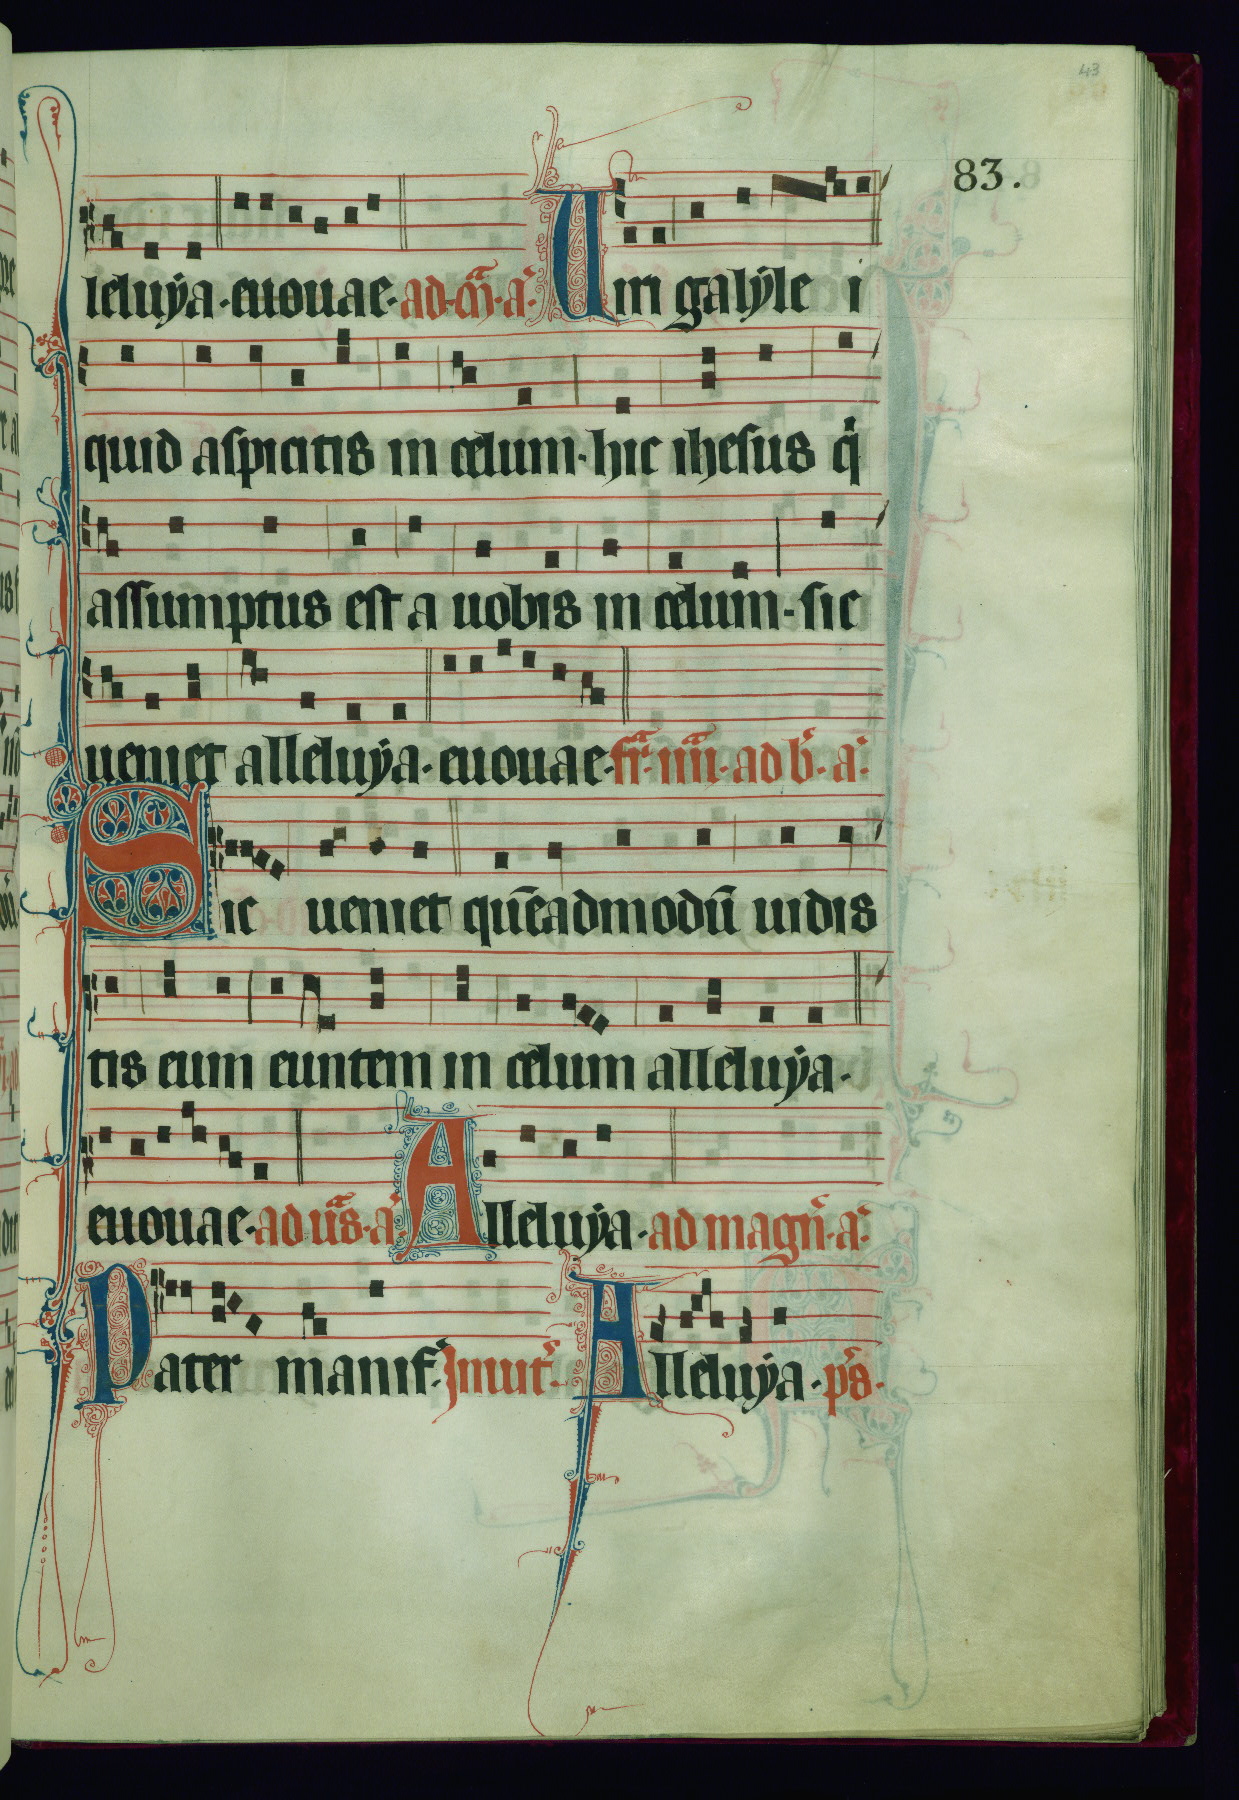 43
83.
leluẏa · euouae · ad · m̄ · a͛ · Uiri galẏle i
quid aspicitis in celum · hic ihesus q̇
assumptus est a uobis in celum · sic
ueniet alleluẏa · euouae · fr̄ · iiii · ad b͛ · a͛ ·
Sic ueniet quēadmodū uidis
tis eum euntem in celum alleluẏa ·
euouae · ad u̅s · a͛ · Alleluẏa · ad magn̄ · a͛ ·
Pater manif͛ · Inuit͛ · Alleluẏa · p͛s ·